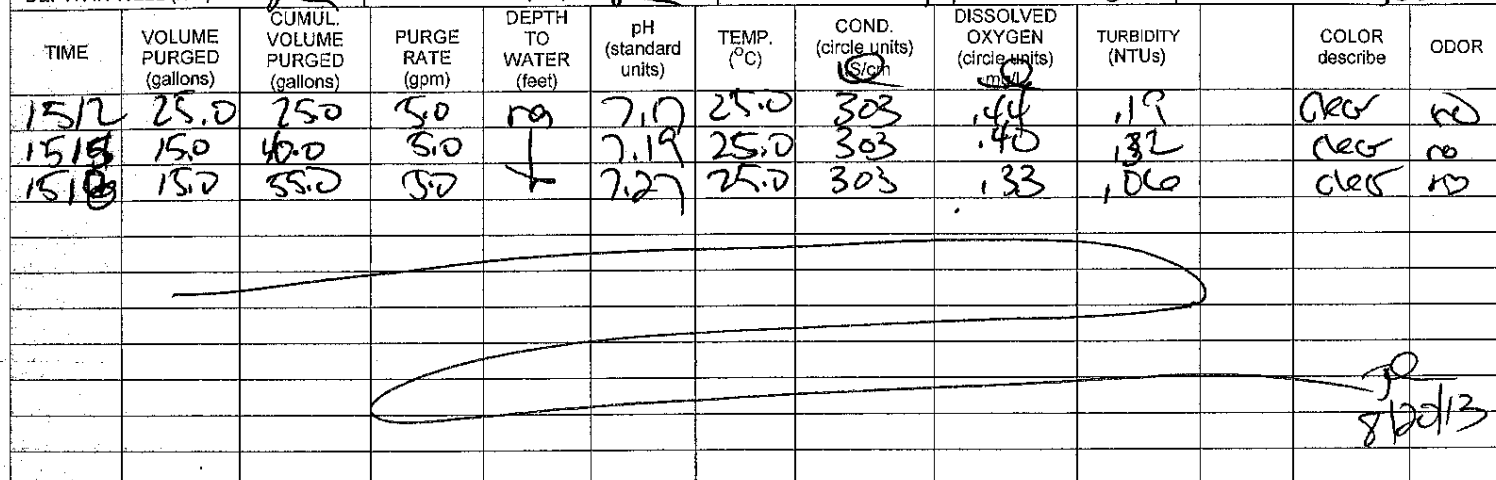 TIME VOLUME PURGED (gallons) CUMUL. VOLUME PURGED (gallons) PURGE RATE (gpm) DEPTH TO WATER (feet) pH (standard units) TEMP. (°C) COND. (circle units) DISSOLVED OXYGEN (circle units) mg/L TURBIDITY (NTUs) COLOR describe ODOR
1512 25.0 25.0 5.0 na 7.17 25.0 303 .44 .19 clear no
1515 15.0 40.0 5.0 7.19 25.0 303 .40 .32 clear no
15.0 55.0 5.0 7.27 25.0 303 .33 .06 clear no
8/20/13